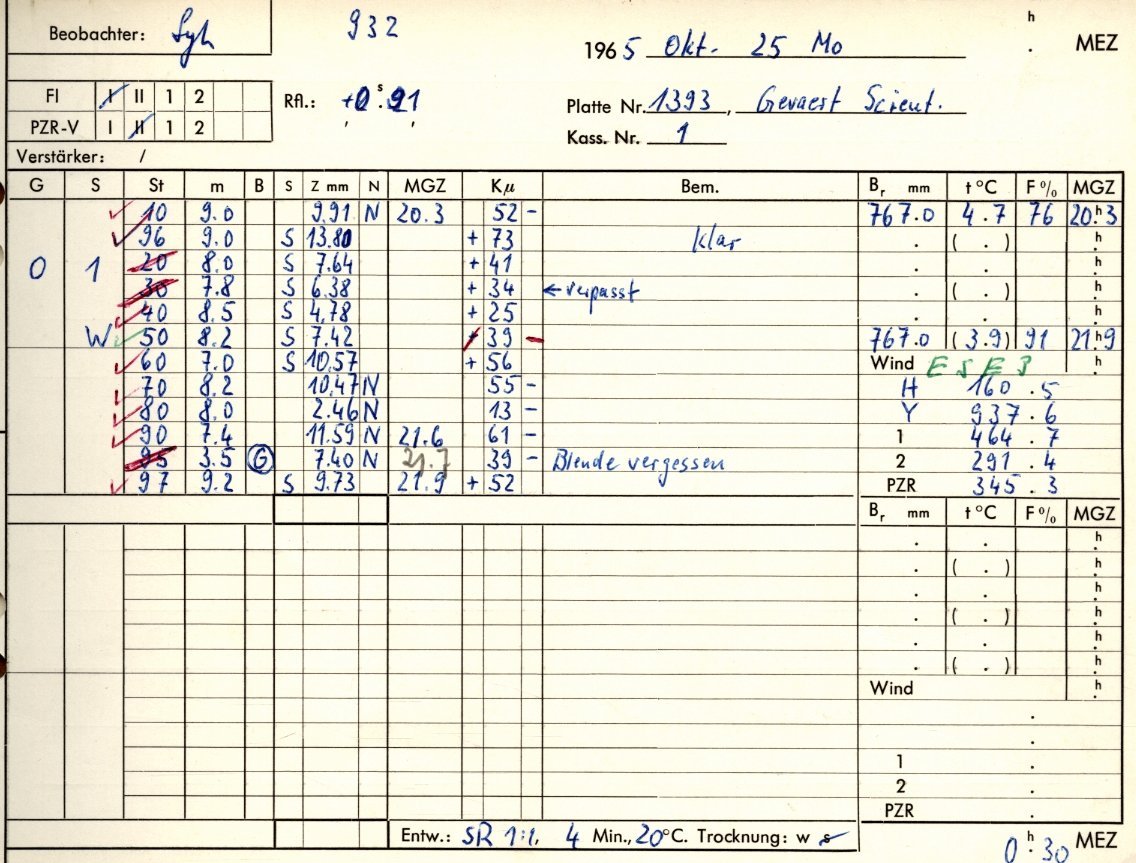 Beobachter: Syh 932 1965 Okt. 25 Mo h . MEZ
FI I II 1 2 Rfl.: +0 s 91 Platte Nr. 1393, Gevaert Scient.
PZR-V I II 1 2 Kass. Nr. 1
Verstärker: /
G S St m B S Z mm N MGZ Kμ Bem. Br mm t °C F % MGZ
10 9.0 9.91 N 20.3 52 - 767.0 4.7 76 20.h3
96 9.0 S 13.80 + 73 klar . ( . ) h.
0 1 20 8.0 S 7.64 + 41 . . h.
30 7.8 S 6.38 + 34 ← verpasst . ( . ) h.
40 8.5 S 4.78 + 25 . . h.
W 50 8.2 S 7.42 + 39 - 767.0 (3.9) 91 21.h9
60 7.0 S 10.57 + 56 Wind E S E 3 h.
70 8.2 10.47 N 55 - H 160.5
80 8.0 2.46 N 13 - Y 937.6
90 7.4 11.59 N 21.6 61 - 1 464.7
95 3.5 G 7.40 N 21.7 39 - Blende vergessen 2 291.4
97 9.2 S 9.73 21.9 + 52 PZR 345.3
Br mm t °C F % MGZ
. . h.
. ( . ) h.
. . h.
. ( . ) h.
. . h.
. ( . ) h.
Wind h.
.
.
1 .
2 .
PZR .
Entw.: SR 1:1, 4 Min., 20°C. Trocknung: w s 0 h. 30 MEZ